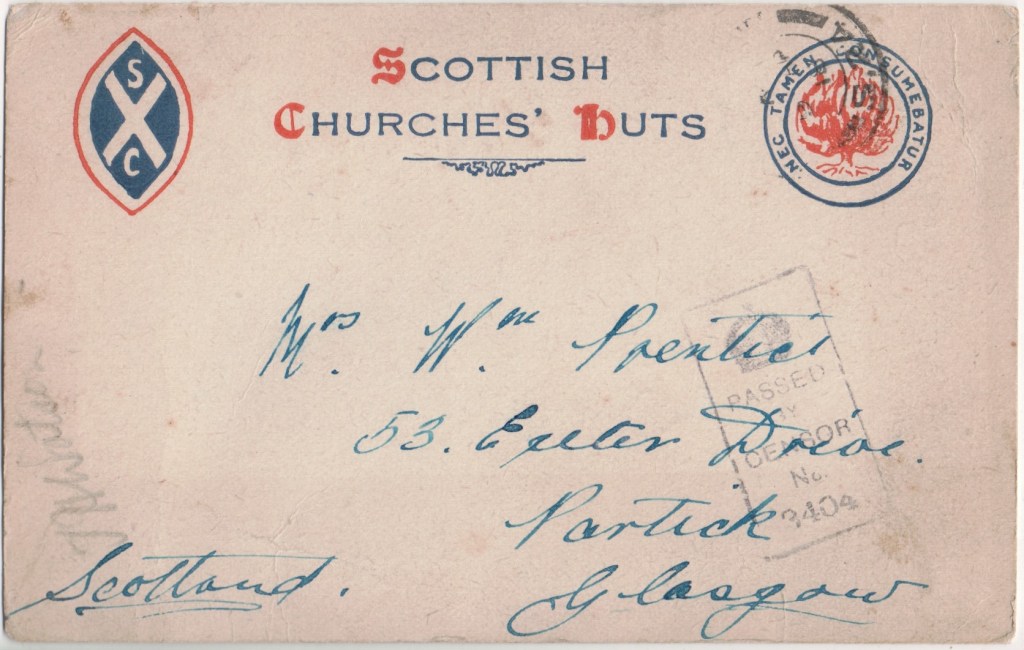 S
C
SCOTTISH
CHURCHES' HUTS
NEC TAMEN CONSUMEBATUR
Mrs. Wm Prentice
53. Exeter Drive.
Partick
Glasgow
Scotland.
PASSED
BY
CENSOR
No.
3404